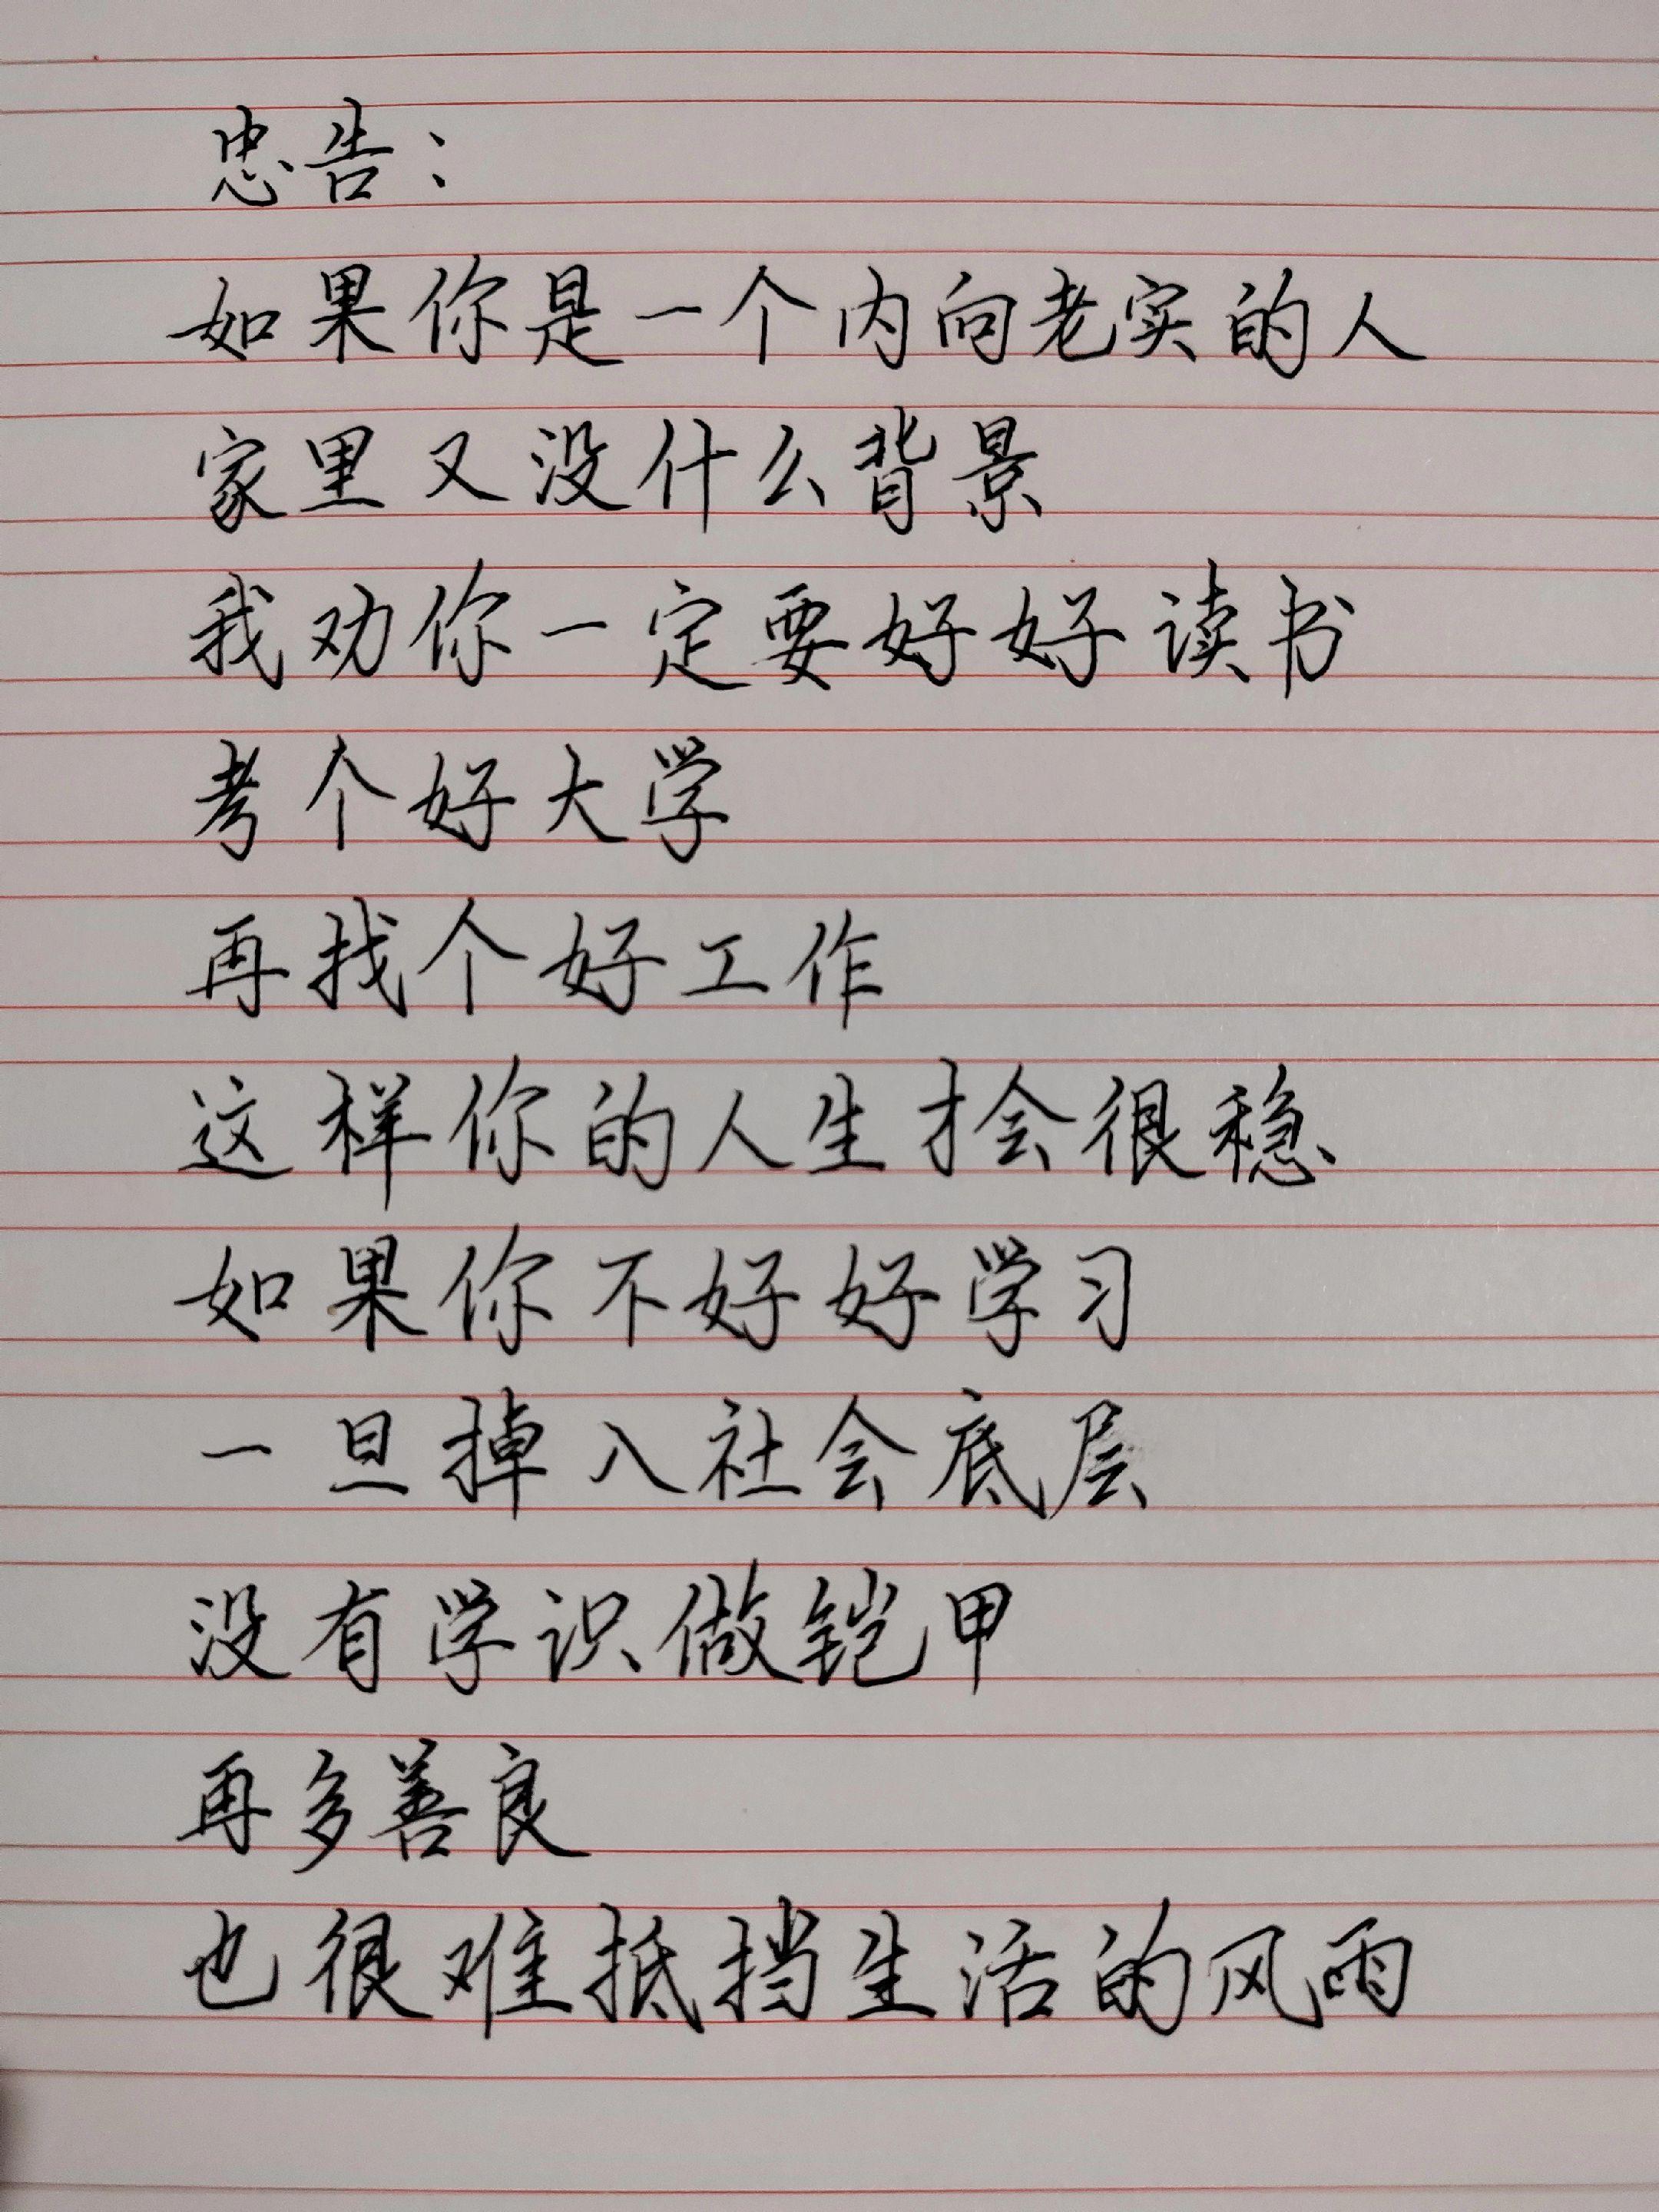 忠告：
如果你是一个内向老实的人
家里又没什么背景
我劝你一定要好好读书
考个好大学
再找个好工作
这样你的人生才会很稳
如果你不好好学习
一旦掉入社会底层
没有学识做铠甲
再多善良
也很难抵挡生活的风雨